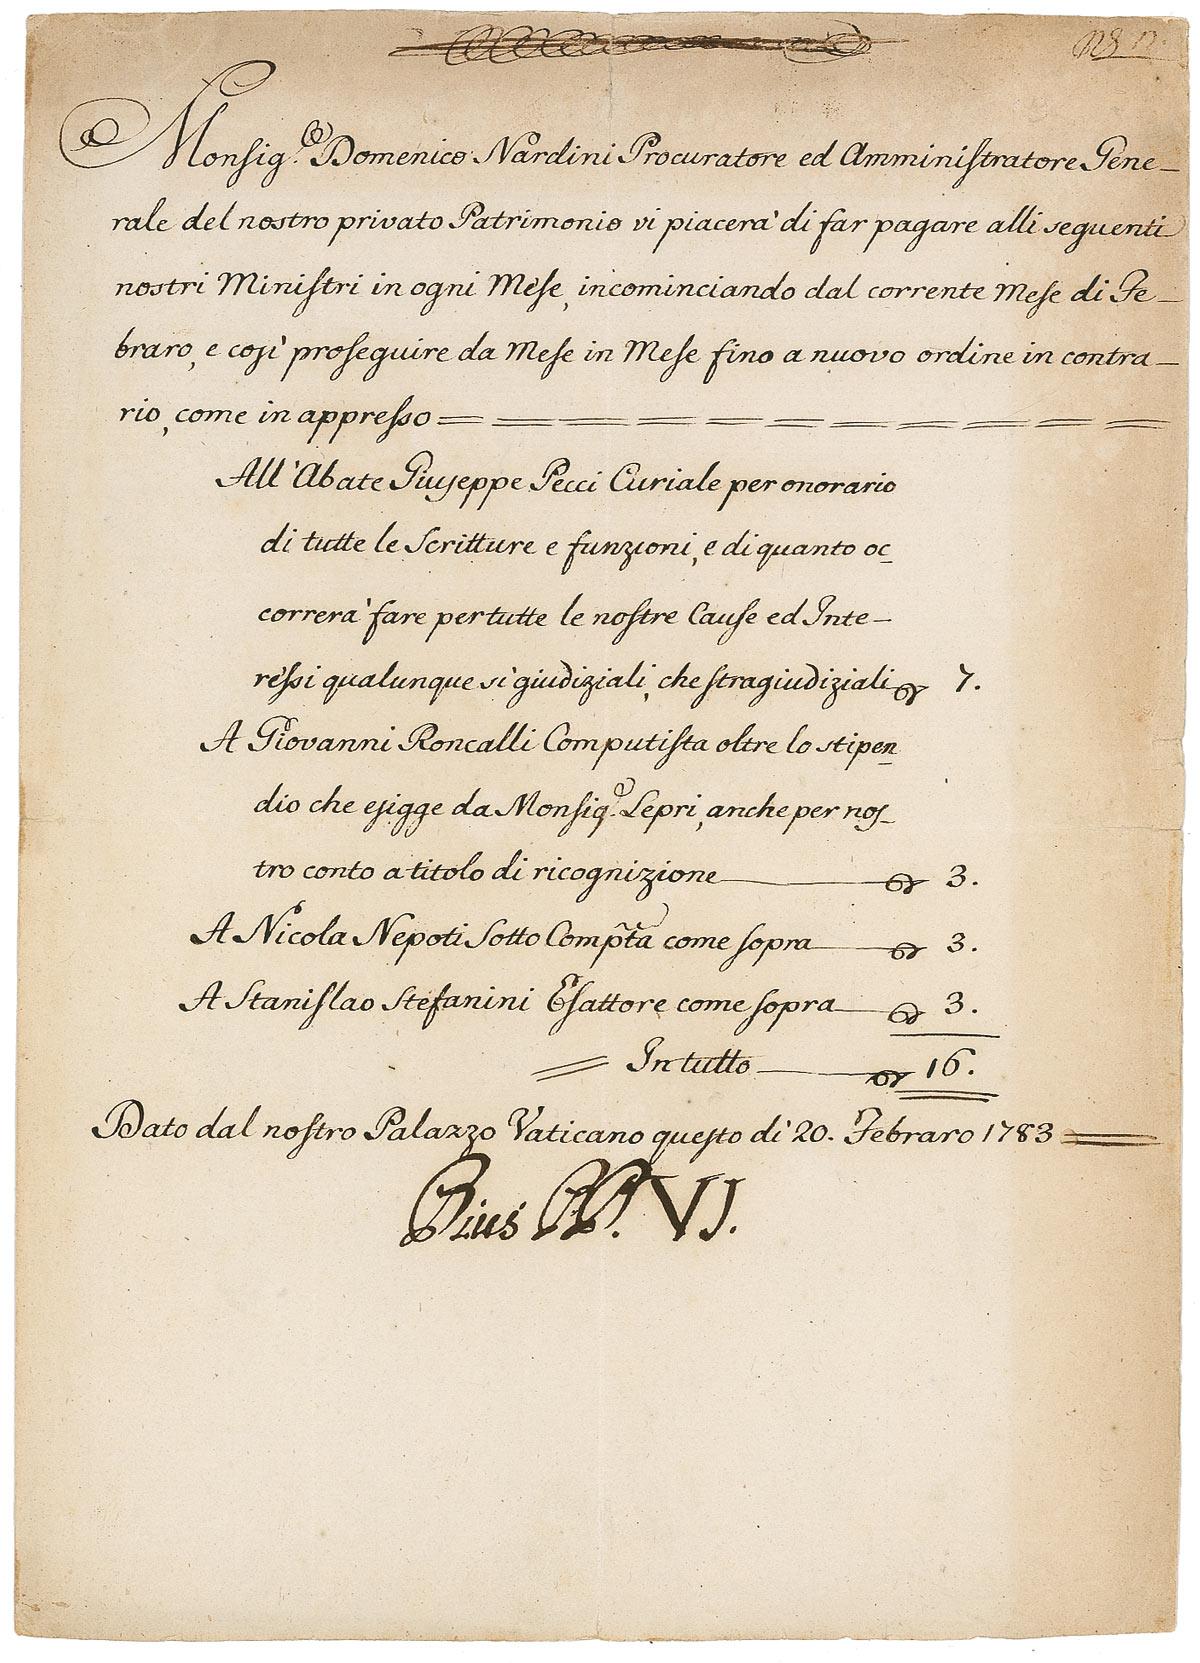 Nº 12.
Monsigʳᵉ Domenico Nardini Procuratore ed Amministratore Gene-
rale del nostro privato Patrimonio vi piacera' di far pagare alli seguenti
nostri Ministri in ogni Mese, incominciando dal corrente Mese di Fe-
braro, e cosi' proseguire da Mese in Mese fino a nuovo ordine in contra-
rio, come in appresso
All'Abate Giuseppe Pecci Curiale per onorario
di tutte le Scritture e funzioni, e di quanto oc-
correra' fare per tutte le nostre Cause ed Inte-
ressi qualunque si' giudiziali, che stragiudiziali 7.
A Giovanni Roncalli Computista oltre lo stipen
dio che esigge da Monsigʳ. Lepri, anche per nos-
tro conto a titolo di ricognizione 3.
A Nicola Nepoti Sotto Compta come sopra 3.
A Stanislao Stefanini Esattore come sopra 3.
In tutto 16.
Dato dal nostro Palazzo Vaticano questo di' 20. Febraro 1783
Pius PP. VI.